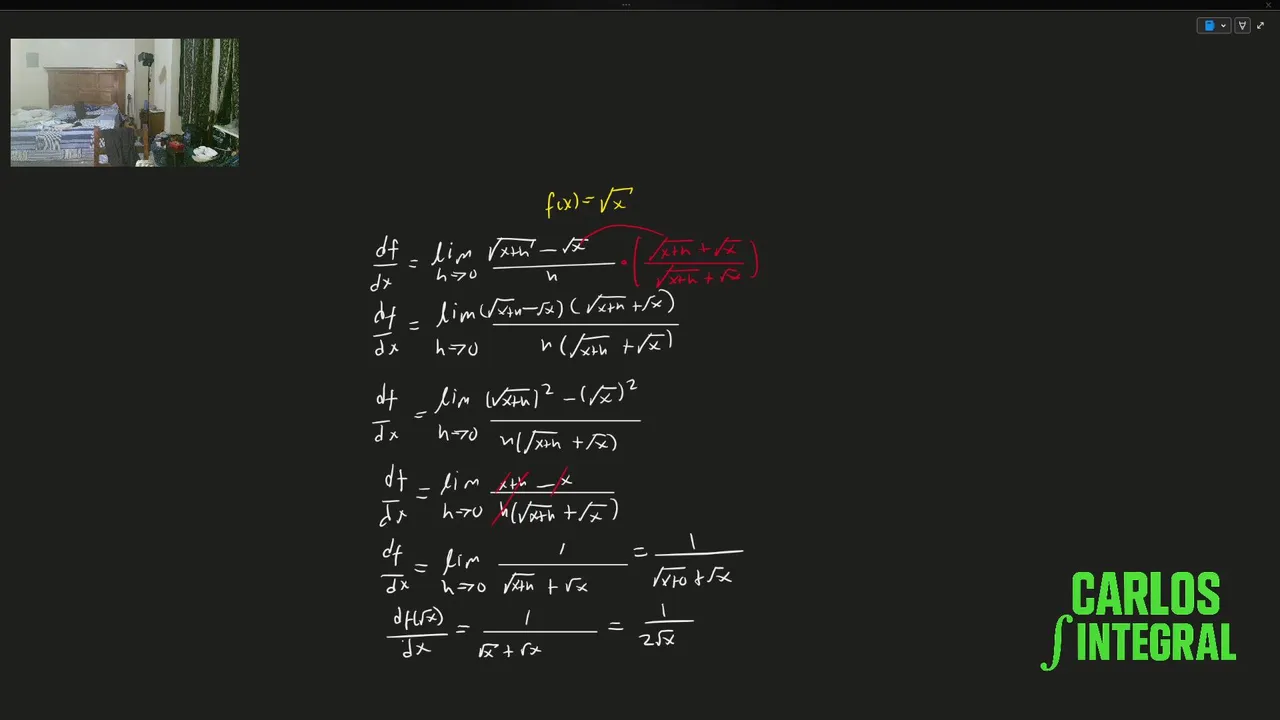 f(x) = √x
df/dx = lim h→0 (√(x+h) − √x)/h · ((√(x+h) + √x)/(√(x+h) + √x))
df/dx = lim h→0 (√(x+h) − √x)(√(x+h) + √x)/(h(√(x+h) + √x))
df/dx = lim h→0 ((√(x+h))² − (√x)²)/(h(√(x+h) + √x))
df/dx = lim h→0 (x+h − x)/(h(√(x+h) + √x))
df/dx = lim h→0 1/(√(x+h) + √x) = 1/(√(x+0) + √x)
df(√x)/dx = 1/(√x + √x) = 1/(2√x)
CARLOS
∫INTEGRAL